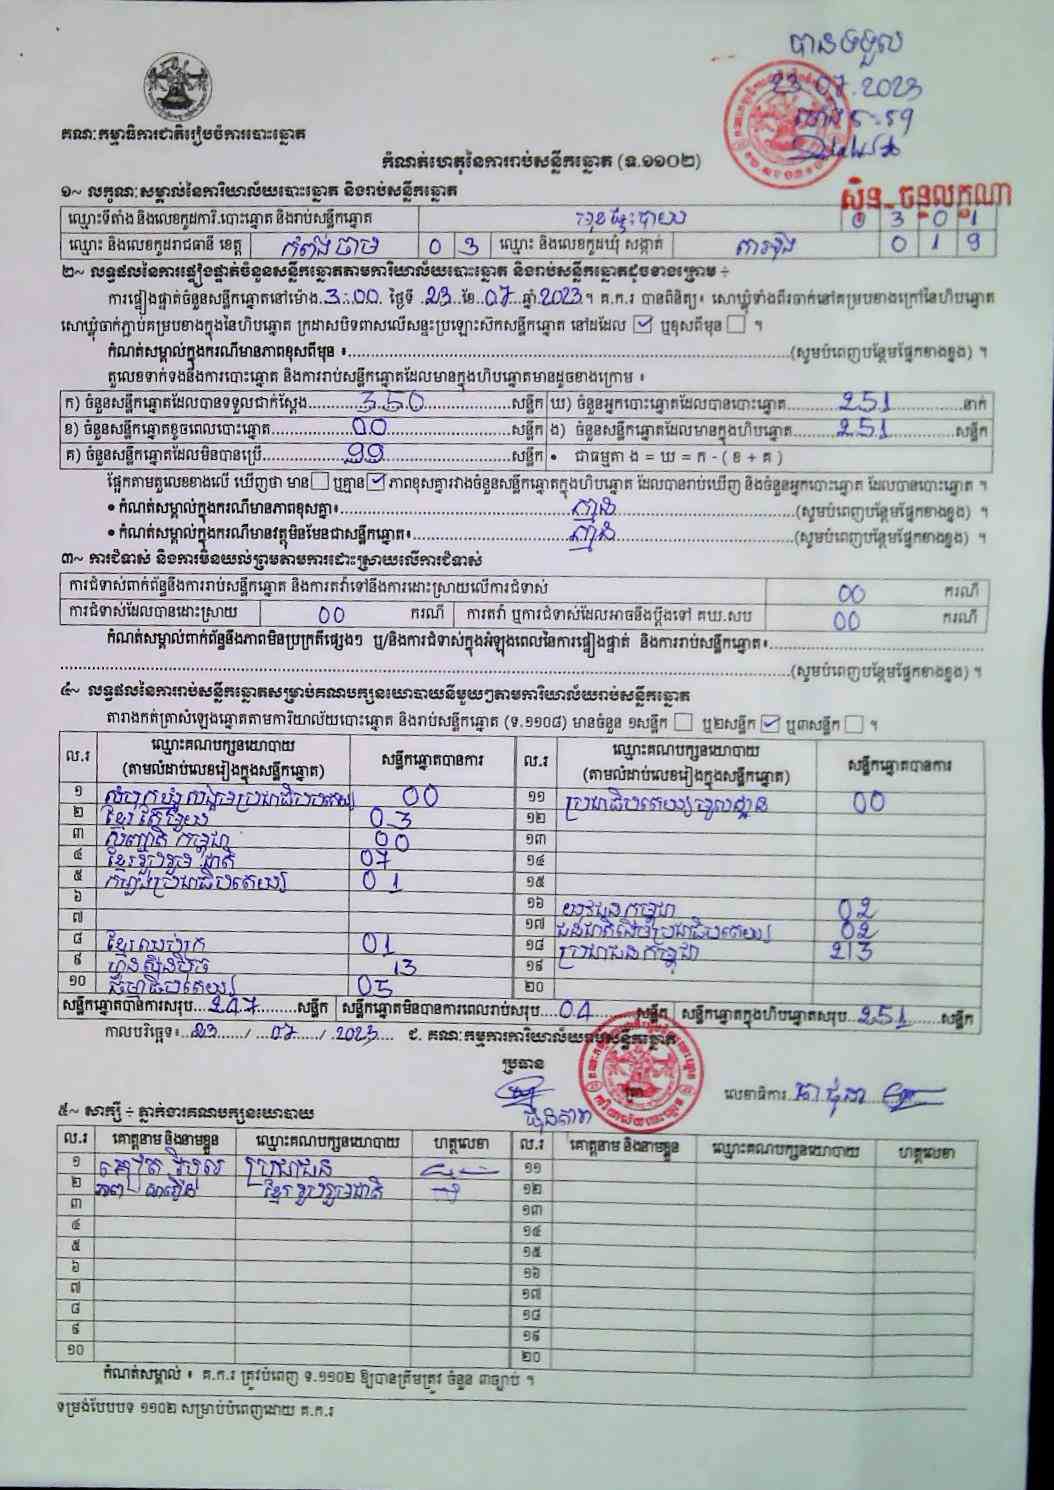 បានទទួល
23.07.2023
គណៈកម្មាធិការជាតិរៀបចំការបោះឆ្នោត
កំណត់ហេតុនៃការរាប់សន្លឹកឆ្នោត (ទ.១១០២)
ស៊ិន-ចន្ទលក្ខណា
១~ លក្ខណៈសម្គាល់នៃការិយាល័យបោះឆ្នោត និងរាប់សន្លឹកឆ្នោត
ឈ្មោះទីតាំង និងលេខកូដការិ.បោះឆ្នោត និងរាប់សន្លឹកឆ្នោត 0301
ឈ្មោះ និងលេខកូដរាជធានី ខេត្ត កំពង់ចាម 03 ឈ្មោះ និងលេខកូដឃុំ សង្កាត់ 019
២~ លទ្ធផលនៃការផ្ទៀងផ្ទាត់ចំនួនសន្លឹកឆ្នោតតាមការិយាល័យបោះឆ្នោត និងរាប់សន្លឹកឆ្នោតដូចខាងក្រោម ÷
ការផ្ទៀងផ្ទាត់ចំនួនសន្លឹកឆ្នោតនៅម៉ោង 3:00 ថ្ងៃទី 23 ខែ 07 ឆ្នាំ 2023 ។ គ.ក.រ បានពិនិត្យ៖ សោឃ្លុំទាំងពីរចាក់នៅគម្របខាងក្រៅនៃហិបឆ្នោត
សោឃ្លុំចាក់ភ្ជាប់គម្របខាងក្នុងនៃហិបឆ្នោត ក្រដាសបិទពាសលើសន្ទះប្រឡោះស៊កសន្លឹកឆ្នោត នៅដដែល ☑ ឬខុសពីមុន ☐ ។
កំណត់សម្គាល់ក្នុងករណីមានភាពខុសពីមុន ៖ (សូមបំពេញបន្ថែមផ្នែកខាងខ្នង) ។
តួលេខទាក់ទងនឹងការបោះឆ្នោត និងការរាប់សន្លឹកឆ្នោតដែលមានក្នុងហិបឆ្នោតមានដូចខាងក្រោម ៖
ក) ចំនួនសន្លឹកឆ្នោតដែលបានទទួលជាក់ស្តែង 350 សន្លឹក ឃ) ចំនួនអ្នកបោះឆ្នោតដែលបានបោះឆ្នោត 251 នាក់
ខ) ចំនួនសន្លឹកឆ្នោតខូចពេលបោះឆ្នោត 00 សន្លឹក ង) ចំនួនសន្លឹកឆ្នោតដែលមានក្នុងហិបឆ្នោត 251 សន្លឹក
គ) ចំនួនសន្លឹកឆ្នោតដែលមិនបានប្រើ 99 សន្លឹក • ជាធម្មតា ង = ឃ = ក - ( ខ + គ )
ផ្អែកតាមតួលេខខាងលើ ឃើញថា មាន ☐ ឬគ្មាន ☑ ភាពខុសគ្នារវាងចំនួនសន្លឹកឆ្នោតក្នុងហិបឆ្នោត ដែលបានរាប់ឃើញ និងចំនួនអ្នកបោះឆ្នោត ដែលបានបោះឆ្នោត ។
• កំណត់សម្គាល់ក្នុងករណីមានភាពខុសគ្នា៖ គ្មាន (សូមបំពេញបន្ថែមផ្នែកខាងខ្នង) ។
• កំណត់សម្គាល់ក្នុងករណីមានវត្ថុមិនមែនជាសន្លឹកឆ្នោត៖ គ្មាន (សូមបំពេញបន្ថែមផ្នែកខាងខ្នង) ។
៣~ ការជំទាស់ និងការមិនយល់ព្រមតាមការដោះស្រាយលើការជំទាស់
ការជំទាស់ពាក់ព័ន្ធនឹងការរាប់សន្លឹកឆ្នោត និងការតវ៉ាទៅនឹងការដោះស្រាយលើការជំទាស់ 00 ករណី
ការជំទាស់ដែលបានដោះស្រាយ 00 ករណី ការតវ៉ា ឬការជំទាស់ដែលអាចនឹងប្តឹងទៅ គឃ.សប 00 ករណី
កំណត់សម្គាល់ពាក់ព័ន្ធនឹងភាពមិនប្រក្រតីផ្សេងៗ ឬ/និងការជំទាស់ក្នុងអំឡុងពេលនៃការផ្ទៀងផ្ទាត់ និងការរាប់សន្លឹកឆ្នោត៖
(សូមបំពេញបន្ថែមផ្នែកខាងខ្នង) ។
៤~ លទ្ធផលនៃការរាប់សន្លឹកឆ្នោតសម្រាប់គណបក្សនយោបាយនីមួយៗតាមការិយាល័យរាប់សន្លឹកឆ្នោត
តារាងកត់ត្រាសំឡេងឆ្នោតតាមការិយាល័យបោះឆ្នោត និងរាប់សន្លឹកឆ្នោត (ទ.១១០៨) មានចំនួន ១សន្លឹក ☐ ឬ២សន្លឹក ☑ ឬ៣សន្លឹក ☐ ។
ល.រ ឈ្មោះគណបក្សនយោបាយ (តាមលំដាប់លេខរៀងក្នុងសន្លឹកឆ្នោត) សន្លឹកឆ្នោតបានការ ល.រ ឈ្មោះគណបក្សនយោបាយ (តាមលំដាប់លេខរៀងក្នុងសន្លឹកឆ្នោត) សន្លឹកឆ្នោតបានការ
១ សំបុកឃ្មុំសង្គមប្រជាធិបតេយ្យ 00 ១១ ប្រជាធិបតេយ្យមូលដ្ឋាន 00
២ ខ្មែរតែមួយ 03 ១២
៣ សញ្ជាតិកម្ពុជា 00 ១៣
៤ ខ្មែររួបរួមជាតិ 07 ១៤
៥ កម្លាំងប្រជាធិបតេយ្យ 01 ១៥
៦ ១៦ យុវជនកម្ពុជា 02
៧ ១៧ ជនជាតិដើមប្រជាធិបតេយ្យ 02
៨ ខ្មែរឈប់ក្រ 01 ១៨ ប្រជាជនកម្ពុជា 213
៩ ហ្វ៊ុនស៊ិនប៉ិច 13 ១៩
១០ ធម្មាធិបតេយ្យ 05 ២០
សន្លឹកឆ្នោតបានការសរុប 247 សន្លឹក សន្លឹកឆ្នោតមិនបានការពេលរាប់សរុប 04 សន្លឹក សន្លឹកឆ្នោតក្នុងហិបឆ្នោតសរុប 251 សន្លឹក
កាលបរិច្ឆេទ៖ 23 / 07 / 2023 ជ. គណៈកម្មការការិយាល័យរាប់សន្លឹកឆ្នោត
ប្រធាន
លេខាធិការ
៥~ សាក្សី ÷ ភ្នាក់ងារគណបក្សនយោបាយ
ល.រ គោត្តនាម និងនាមខ្លួន ឈ្មោះគណបក្សនយោបាយ ហត្ថលេខា ល.រ គោត្តនាម និងនាមខ្លួន ឈ្មោះគណបក្សនយោបាយ ហត្ថលេខា
១ ប្រជាជន ១១
២ ខ្មែររួបរួមជាតិ ១២
៣ ១៣
៤ ១៤
៥ ១៥
៦ ១៦
៧ ១៧
៨ ១៨
៩ ១៩
១០ ២០
កំណត់សម្គាល់ ៖ គ.ក.រ ត្រូវបំពេញ ទ.១១០២ ឱ្យបានត្រឹមត្រូវ ចំនួន ៣ច្បាប់ ។
ទម្រង់បែបបទ ១១០២ សម្រាប់បំពេញដោយ គ.ក.រ